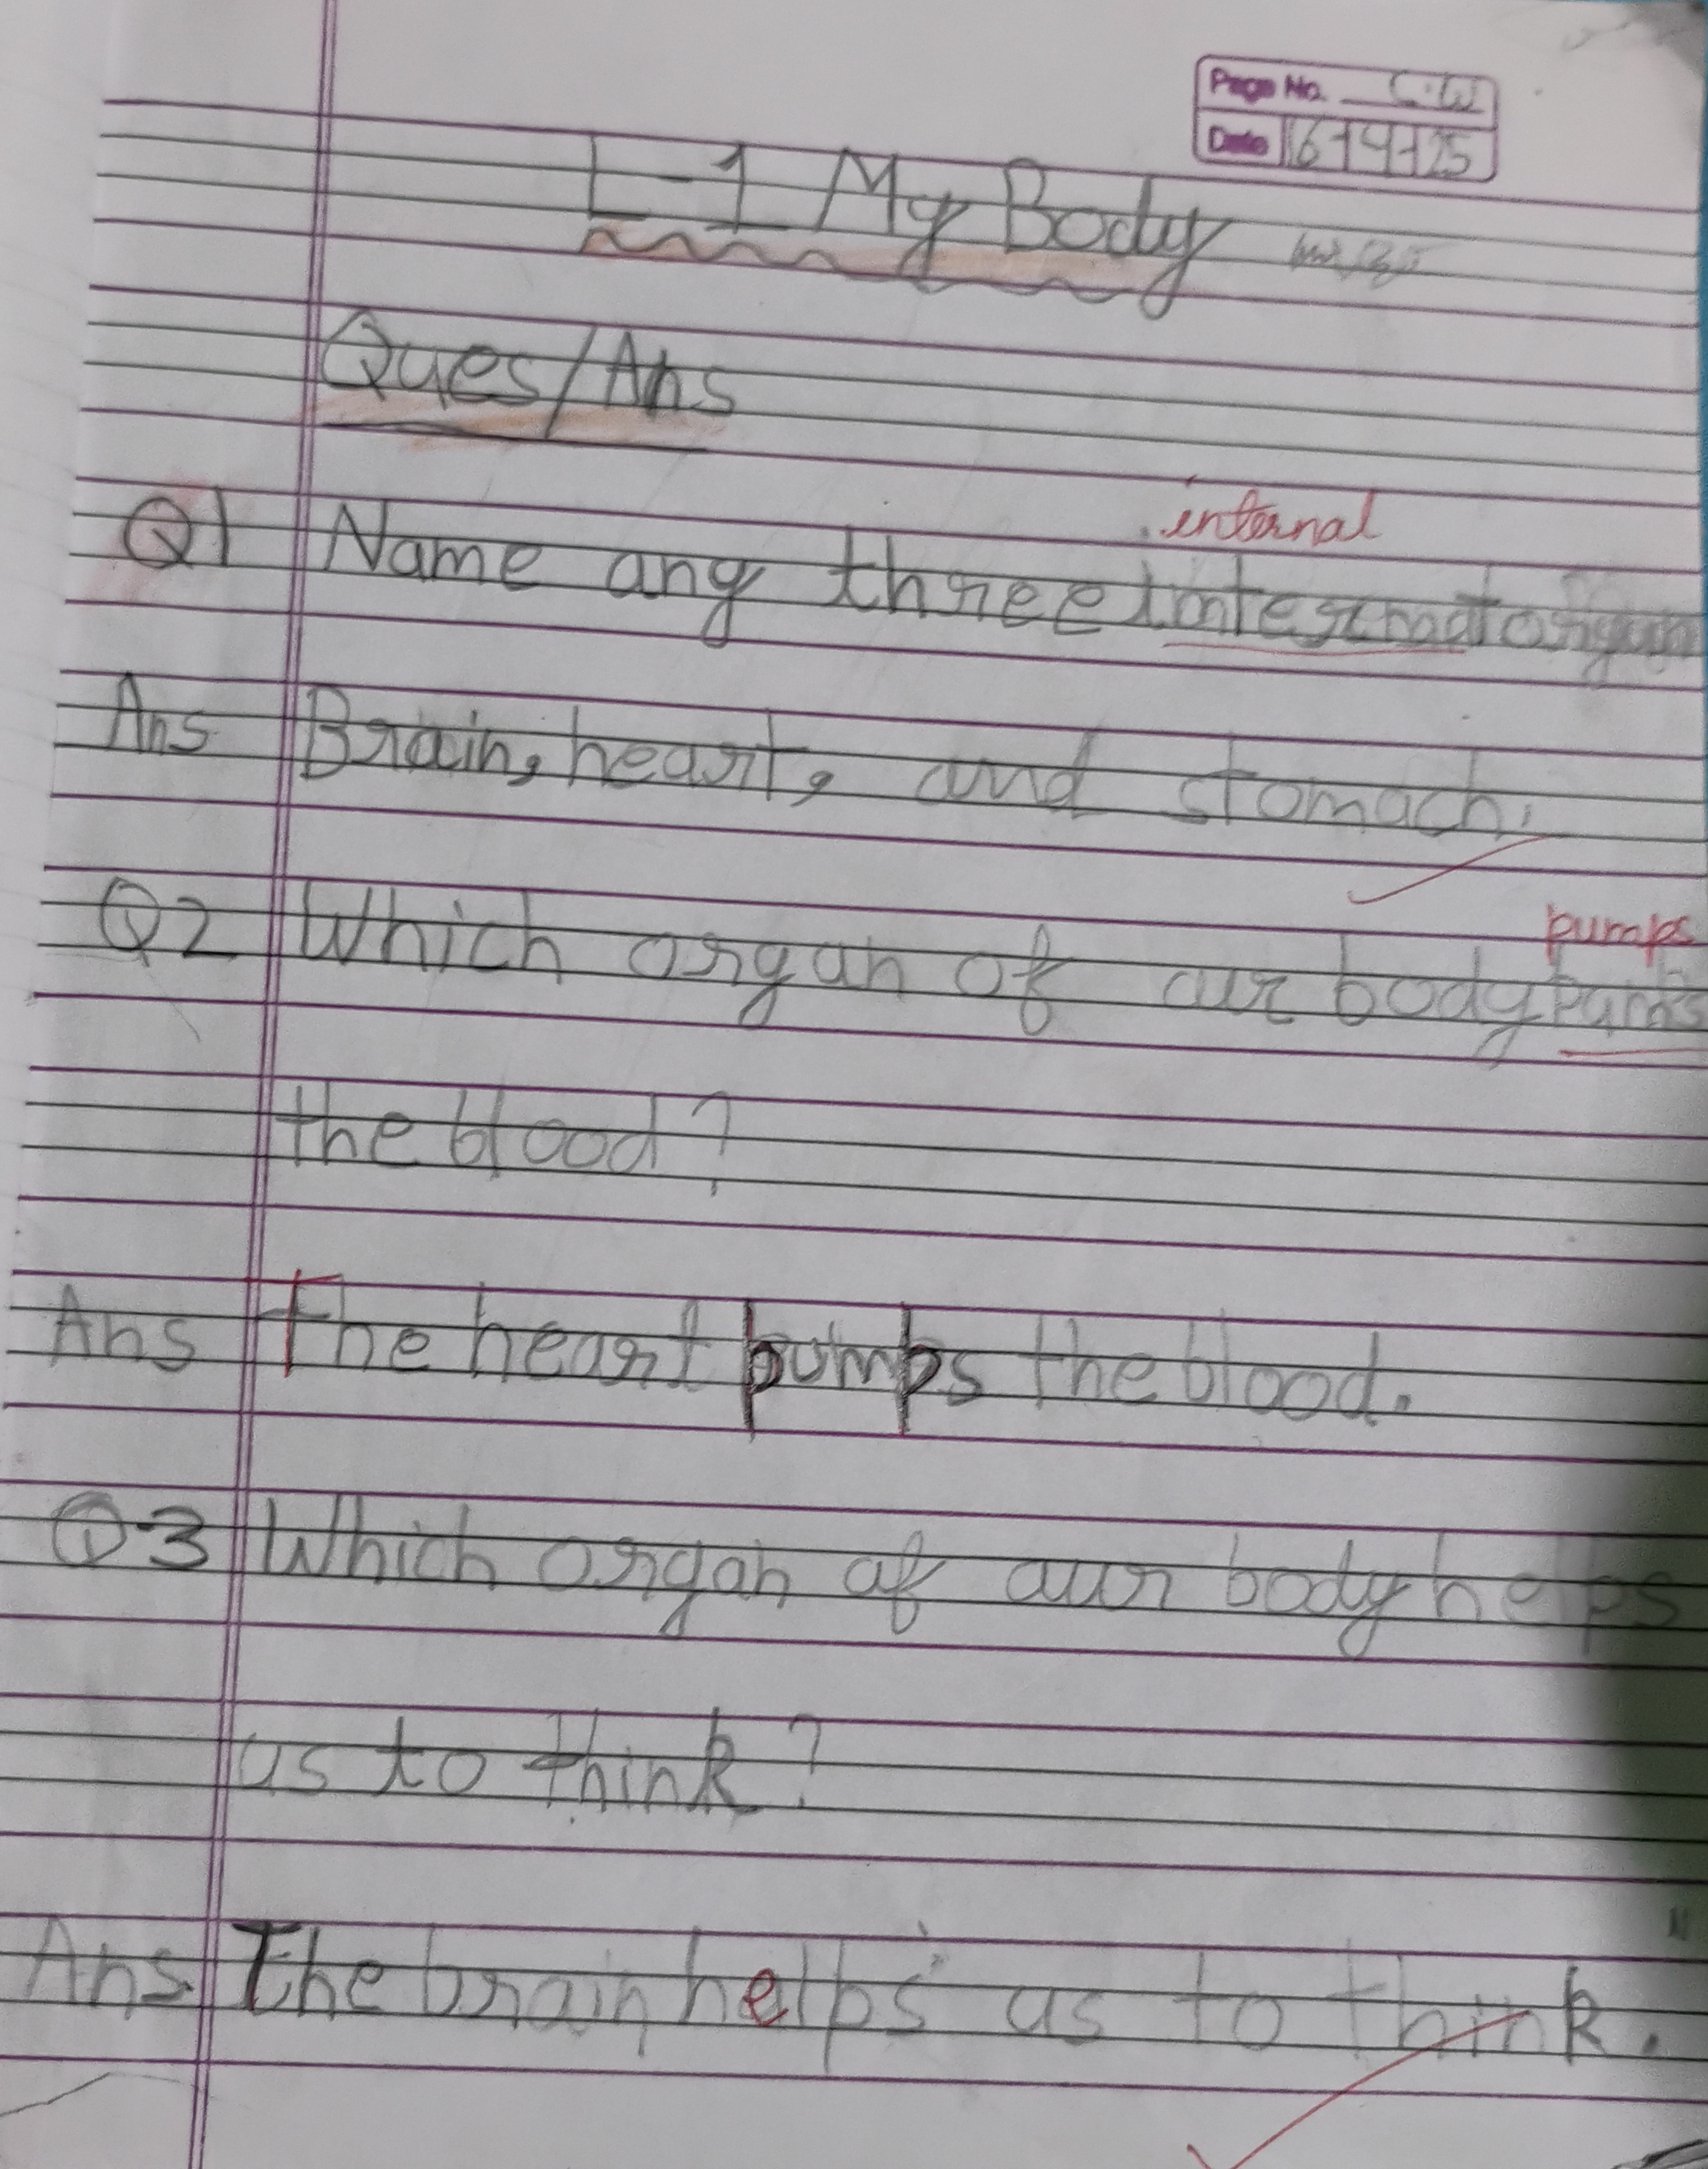 Page No. C.W
Date 16-4-25
L-1 My Body
Ques/Ans
internal
Q1 Name any three organ
Ans Brain, heart, and stomach.
pumps
Q2 Which organ of our body
the blood?
Ans The heart pumps the blood.
Q3 Which organ of our body helps
us to think?
Ans The brain helps us to think.